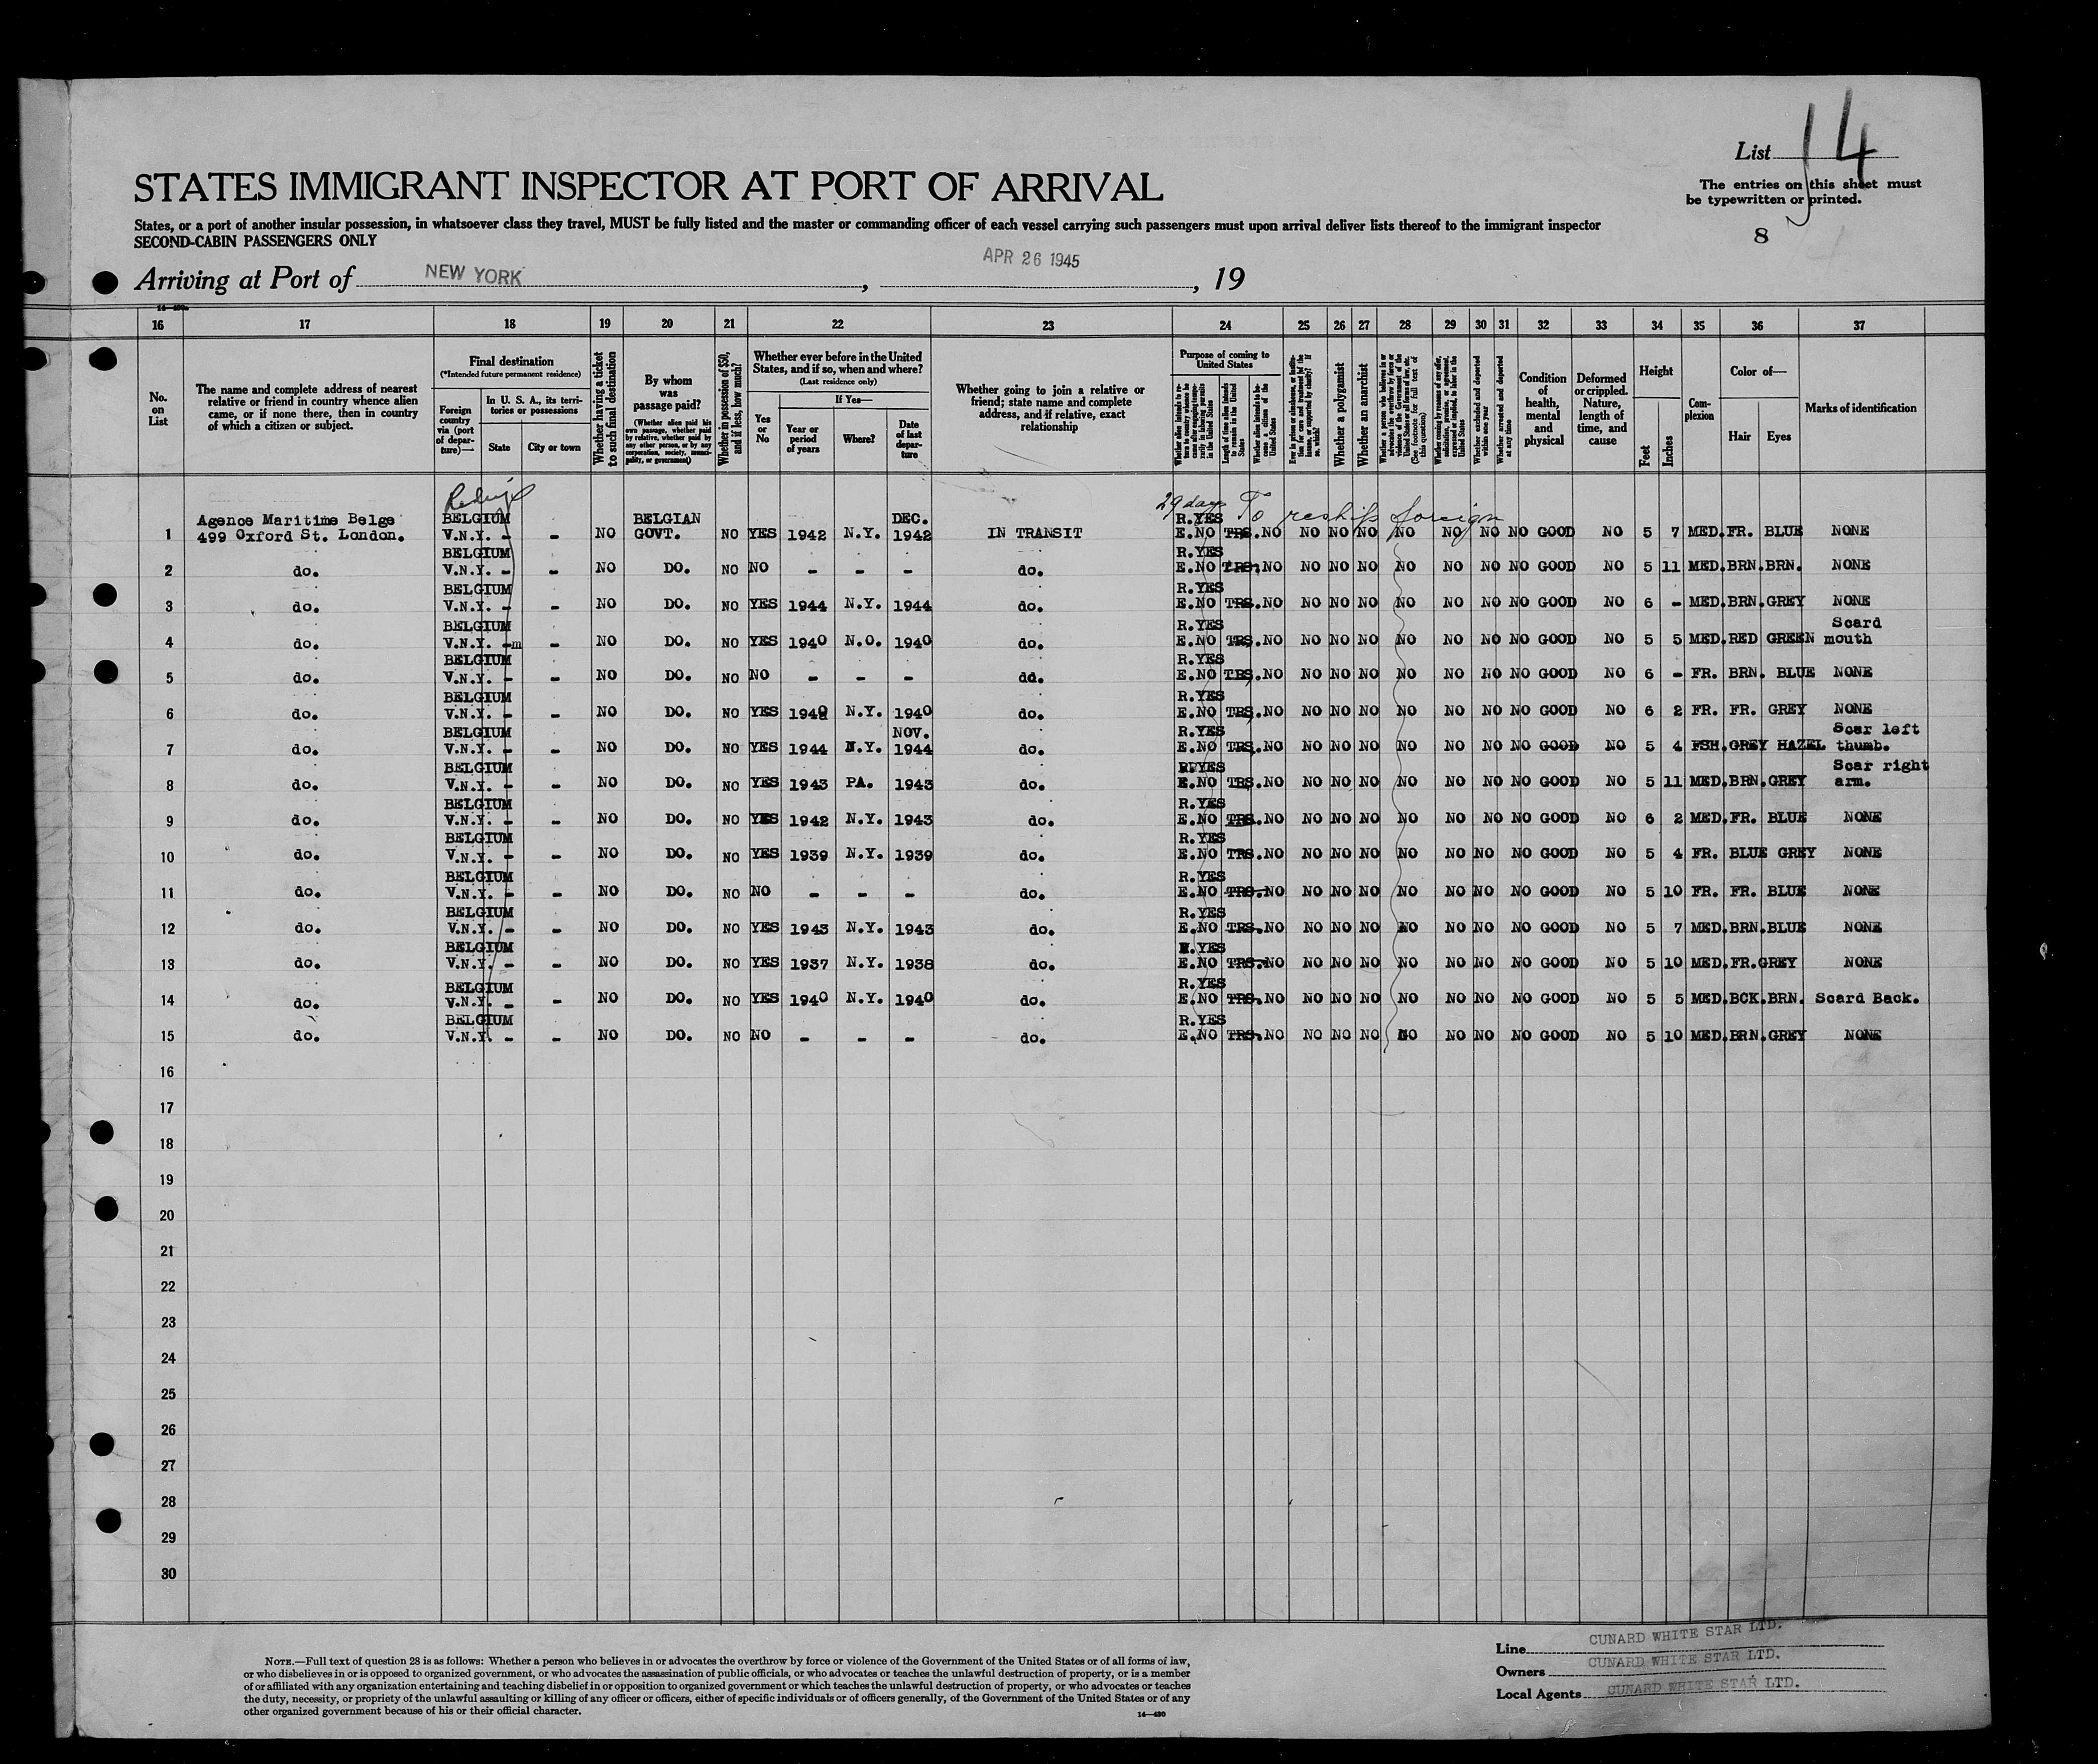 List 14
The entries on this sheet must
be typewritten or printed.
8
STATES IMMIGRANT INSPECTOR AT PORT OF ARRIVAL
States, or a port of another insular possession, in whatsoever class they travel, MUST be fully listed and the master or commanding officer of each vessel carrying such passengers must upon arrival deliver lists thereof to the immigrant inspector
SECOND-CABIN PASSENGERS ONLY
Arriving at Port of NEW YORK, APR 26 1945, 19
16 17 18 19 20 21 22 23 24 25 26 27 28 29 30 31 32 33 34 35 36 37
No. on List
The name and complete address of nearest relative or friend in country whence alien came, or if none there, then in country of which a citizen or subject.
Final destination
(*Intended future permanent residence)
Foreign country via (port of departure)—
In U. S. A., its territories or possessions
State
City or town
Whether having a ticket to such final destination
By whom was passage paid?
(Whether alien paid his own passage, whether paid by relative, whether paid by any other person, or by any corporation, society, municipality, or government)
Whether in possession of $50, and if less, how much?
Whether ever before in the United States, and if so, when and where?
(Last residence only)
Yes or No
If Yes—
Year or period of years
Where?
Date of last departure
Whether going to join a relative or friend; state name and complete address, and if relative, exact relationship
Purpose of coming to United States
Whether a polygamist
Whether an anarchist
Condition of health, mental and physical
Deformed or crippled. Nature, length of time, and cause
Height
Feet
Inches
Complexion
Color of—
Hair
Eyes
Marks of identification
29 days To reship foreign
1 Agence Maritime Belge 499 Oxford St. London. BELGIUM V.N.Y. - - NO BELGIAN GOVT. NO YES 1942 N.Y. DEC. 1942 IN TRANSIT R.YES E.NO TRS. NO NO NO NO NO NO NO NO GOOD NO 5 7 MED. FR. BLUE NONE
2 do. BELGIUM V.N.Y. - - NO DO. NO NO - - - do. R.YES E.NO TRS. NO NO NO NO NO NO NO NO GOOD NO 5 11 MED. BRN. BRN. NONE
3 do. BELGIUM V.N.Y. - - NO DO. NO YES 1944 N.Y. 1944 do. R.YES E.NO TRS. NO NO NO NO NO NO NO NO GOOD NO 6 - MED. BRN. GREY NONE
4 do. BELGIUM V.N.Y. -m - NO DO. NO YES 1940 N.O. 1940 do. R.YES E.NO TRS. NO NO NO NO NO NO NO NO GOOD NO 5 5 MED. RED GREEN Scard mouth
5 do. BELGIUM V.N.Y. - - NO DO. NO NO - - - dd. R.YES E.NO TRS. NO NO NO NO NO NO NO NO GOOD NO 6 - FR. BRN. BLUE NONE
6 do. BELGIUM V.N.Y. - - NO DO. NO YES 1940 N.Y. 1940 do. R.YES E.NO TRS. NO NO NO NO NO NO NO NO GOOD NO 6 2 FR. FR. GREY NONE
7 do. BELGIUM V.N.Y. - - NO DO. NO YES 1944 N.Y. NOV. 1944 do. R.YES E.NO TRS. NO NO NO NO NO NO NO NO GOOD NO 5 4 FSH. GREY HAZEL Scar left thumb.
8 do. BELGIUM V.N.Y. - - NO DO. NO YES 1943 PA. 1943 do. R.YES E.NO TRS. NO NO NO NO NO NO NO NO GOOD NO 5 11 MED. BRN. GREY Scar right arm.
9 do. BELGIUM V.N.Y. - - NO DO. NO YES 1942 N.Y. 1943 do. R.YES E.NO TRS. NO NO NO NO NO NO NO NO GOOD NO 6 2 MED. FR. BLUE NONE
10 do. BELGIUM V.N.Y. - - NO DO. NO YES 1939 N.Y. 1939 do. R.YES E.NO TRS. NO NO NO NO NO NO NO NO GOOD NO 5 4 FR. BLUE GREY NONE
11 do. BELGIUM V.N.Y. - - NO DO. NO NO - - - do. R.YES E.NO TRS. NO NO NO NO NO NO NO NO GOOD NO 5 10 FR. FR. BLUE NONE
12 do. BELGIUM V.N.Y. - - NO DO. NO YES 1943 N.Y. 1943 do. R.YES E.NO TRS. NO NO NO NO NO NO NO NO GOOD NO 5 7 MED. BRN. BLUE NONE
13 do. BELGIUM V.N.Y. - - NO DO. NO YES 1937 N.Y. 1938 do. R.YES E.NO TRS. NO NO NO NO NO NO NO NO GOOD NO 5 10 MED. FR. GREY NONE
14 do. BELGIUM V.N.Y. - - NO DO. NO YES 1940 N.Y. 1940 do. R.YES E.NO TRS. NO NO NO NO NO NO NO NO GOOD NO 5 5 MED. BCK. BRN. Scard Back.
15 do. BELGIUM V.N.Y. - - NO DO. NO NO - - - do. R.YES E.NO TRS. NO NO NO NO NO NO NO NO GOOD NO 5 10 MED. BRN. GREY NONE
16
17
18
19
20
21
22
23
24
25
26
27
28
29
30
NOTE.—Full text of question 28 is as follows: Whether a person who believes in or advocates the overthrow by force or violence of the Government of the United States or of all forms of law,
or who disbelieves in or is opposed to organized government, or who advocates the assassination of public officials, or who advocates or teaches the unlawful destruction of property, or is a member
of or affiliated with any organization entertaining and teaching disbelief in or opposition to organized government or which teaches the unlawful destruction of property, or who advocates or teaches
the duty, necessity, or propriety of the unlawful assaulting or killing of any officer or officers, either of specific individuals or of officers generally, of the Government of the United States or of any
other organized government because of his or their official character.
14—430
Line CUNARD WHITE STAR LTD.
Owners CUNARD WHITE STAR LTD.
Local Agents CUNARD WHITE STAR LTD.